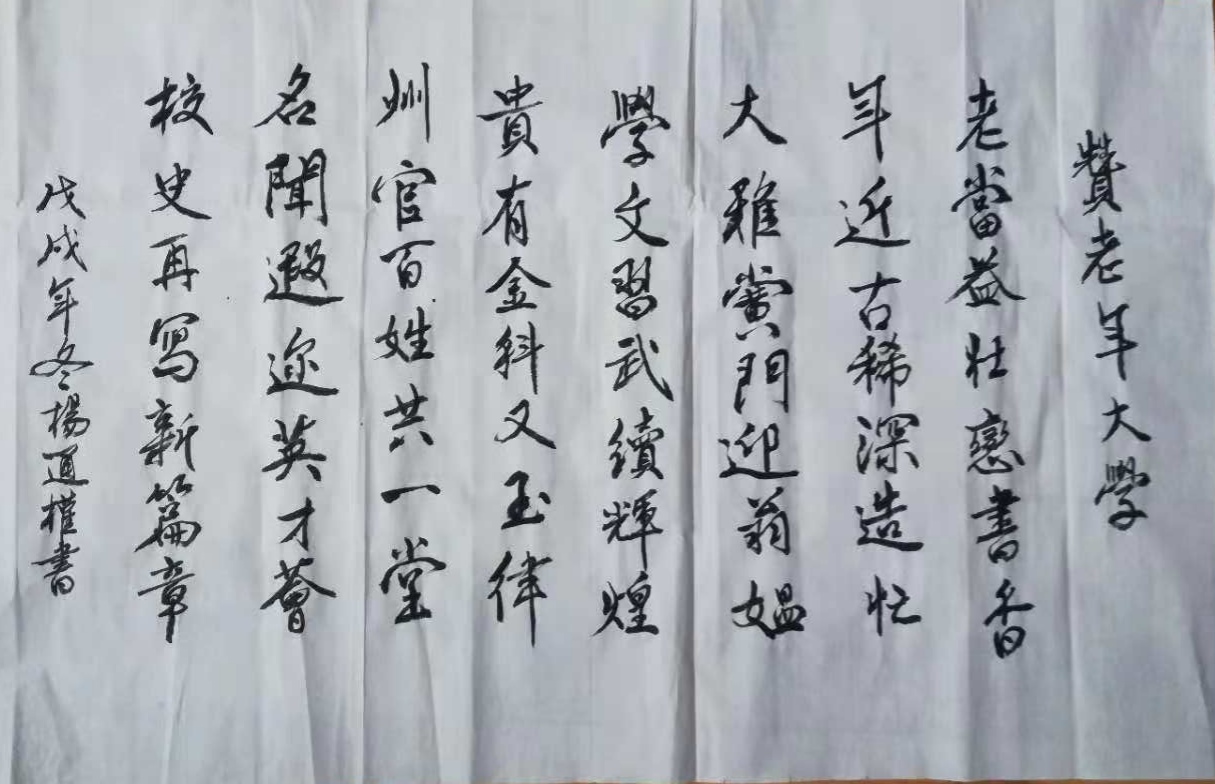 贊老年大學
老當益壯戀書香
年近古稀深造忙
大雅黌門迎翁媼
學文習武續輝煌
貴有金科又玉律
州官百姓共一堂
名聞遐迩英才薈
校史再寫新篇章
戊戌年冬楊通權書